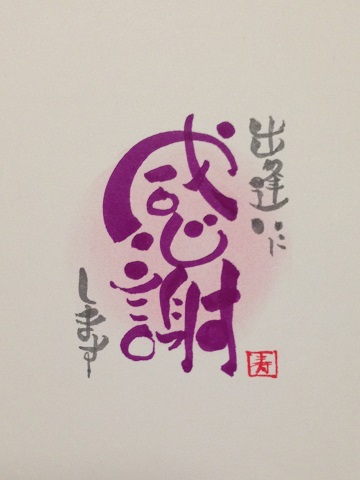 出逢いに
感謝
します
寿